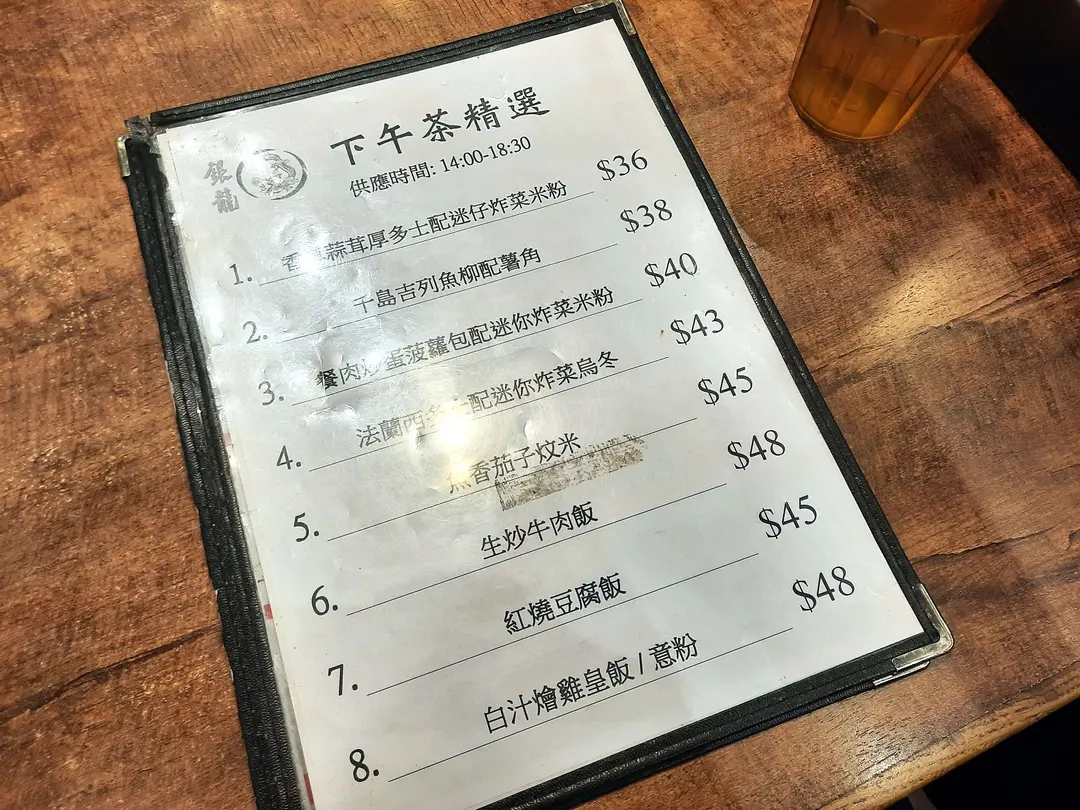 銀龍
下午茶精選
供應時間: 14:00-18:30
1. 蒜茸厚多士配迷仔炸菜米粉 $36
2. 千島吉列魚柳配薯角 $38
3. 餐肉炒蛋菠蘿包配迷你炸菜米粉 $40
4. 法蘭西多士配迷你炸菜烏冬 $43
5. 魚香茄子炆米 $45
6. 生炒牛肉飯 $48
7. 紅燒豆腐飯 $45
8. 白汁燴雞皇飯 / 意粉 $48